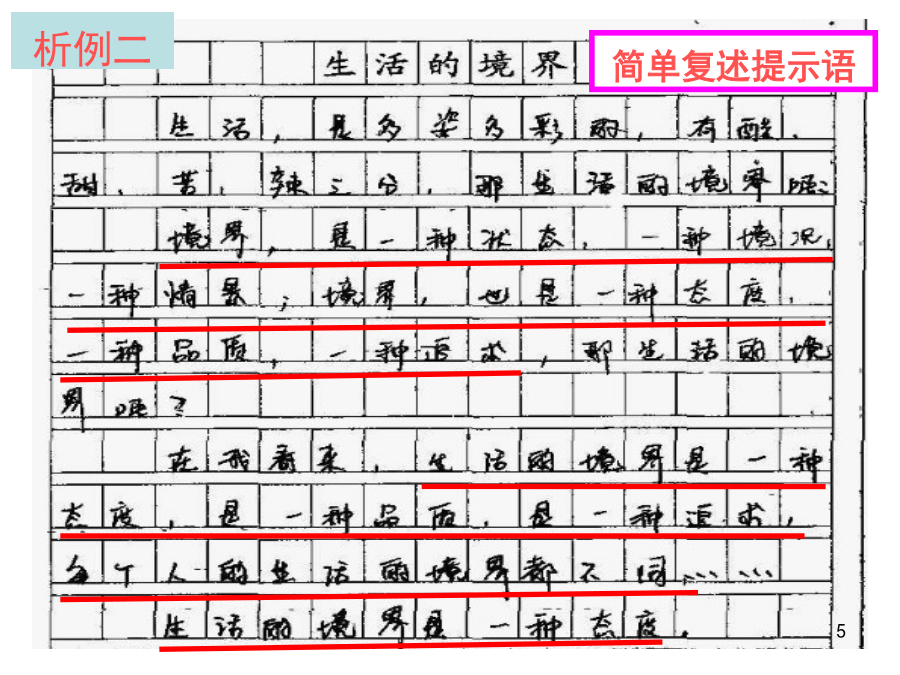 析例二
简单复述提示语
生活的境界
生活，是多姿多彩的，有酸、
甜、苦、辣三分，那生活的境界呢？
境界，是一种状态，一种境况，
一种情景；境界，也是一种态度，
一种品质，一种追求，那生活的境
界呢？
在我看来，生活的境界是一种
态度，是一种品质，是一种追求，
每个人的生活的境界都不同……
生活的境界是一种态度，
5